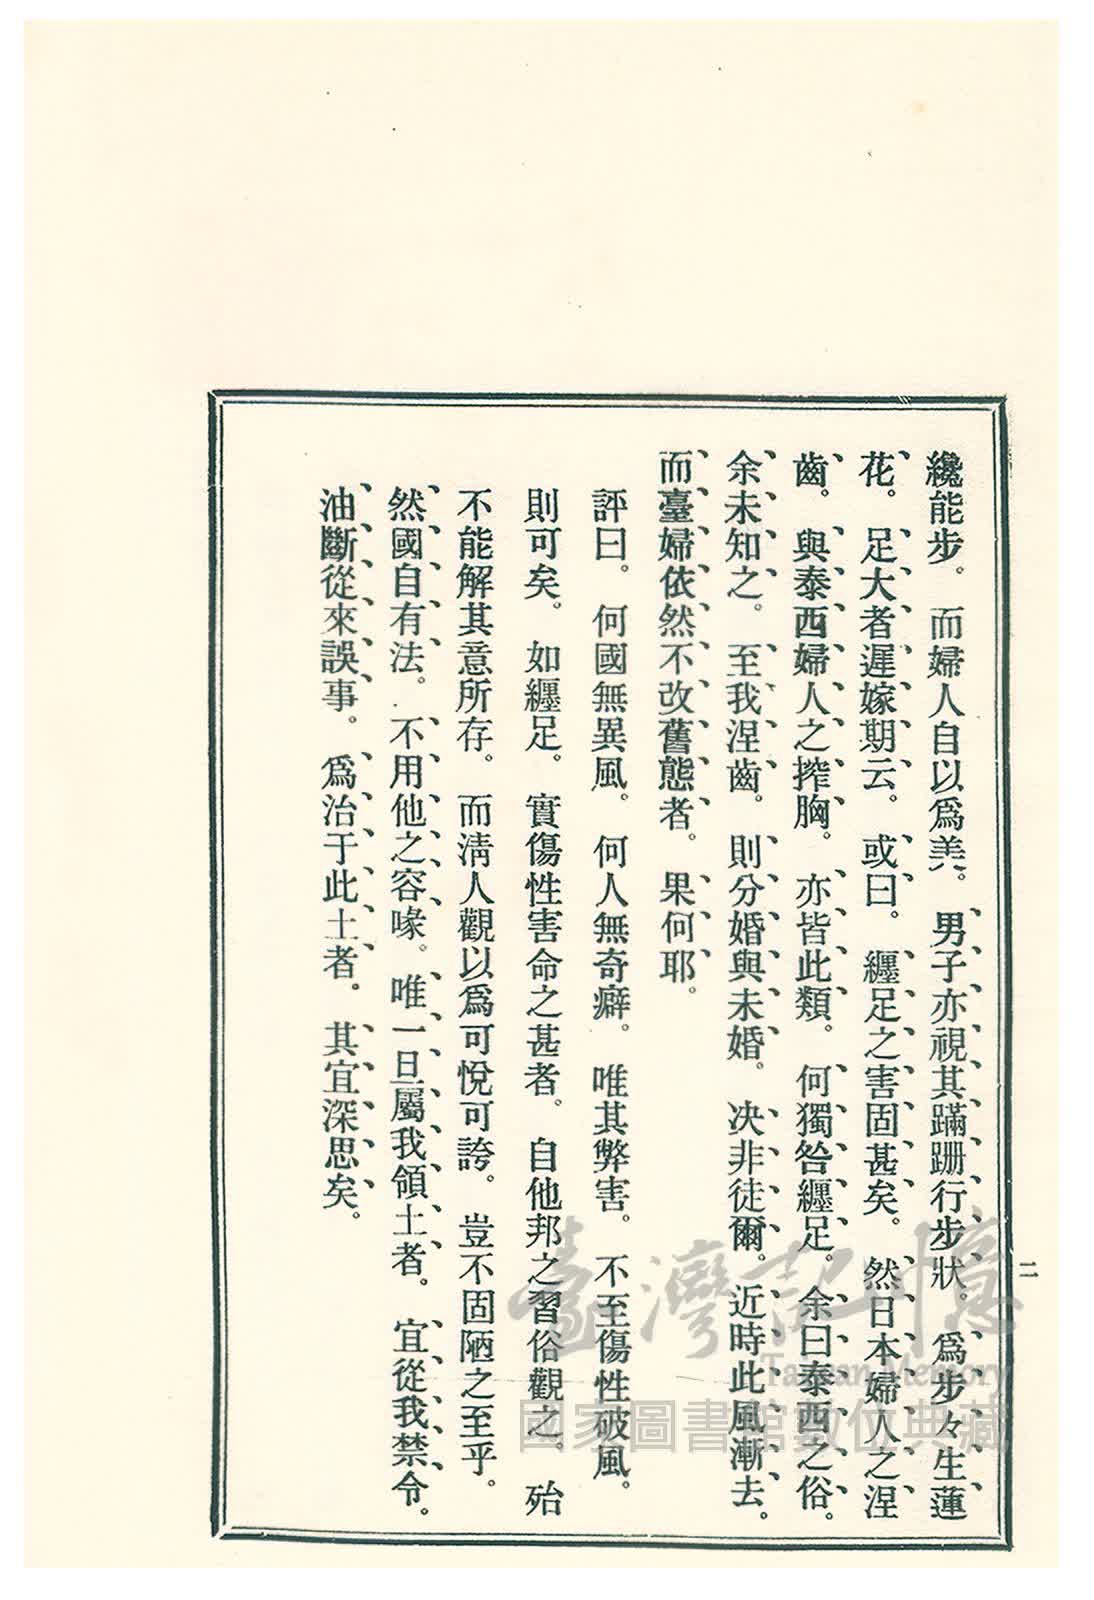 二
纔能步。而婦人自以爲美。男子亦視其蹣跚行步狀。爲步々生蓮
花。足大者遲嫁期云。或曰。纒足之害固甚矣。然日本婦人之涅
齒。與泰西婦人之搾胸。亦皆此類。何獨咎纒足。余曰泰西之俗。
余未知之。至我涅齒。則分婚與未婚。决非徒爾。近時此風漸去。
而臺婦依然不改舊態者。果何耶。
評曰。何國無異風。何人無奇癖。唯其弊害。不至傷性破風。
則可矣。如纒足。實傷性害命之甚者。自他邦之習俗觀之。殆
不能解其意所存。而淸人觀以爲可悅可誇。豈不固陋之至乎。
然國自有法。不用他之容喙。唯一旦屬我領土者。宜從我禁令。
油斷從來誤事。爲治于此土者。其宜深思矣。
臺灣記憶
Taiwan Memory
國家圖書館數位典藏